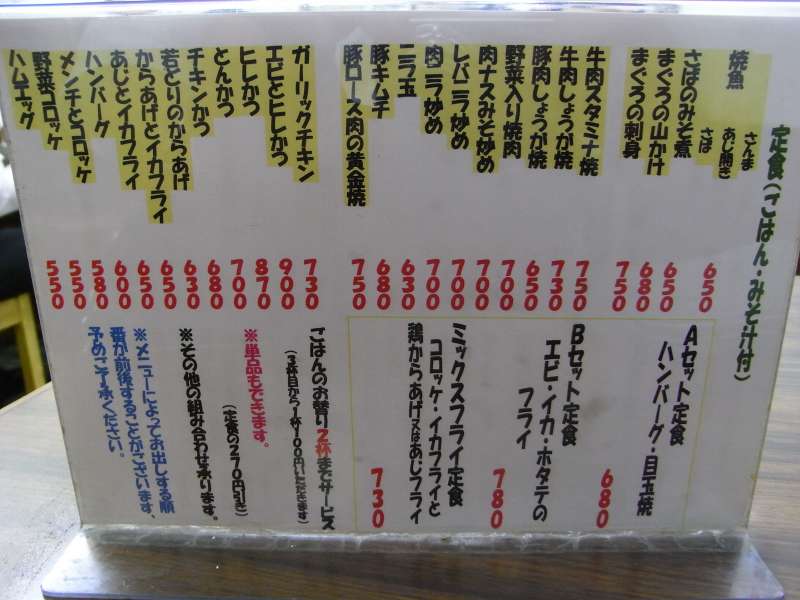 定食(ごはん・みそ汁付)
焼魚
さんま
あじ開き
さば
650
さばのみそ煮 650
まぐろの山かけ 680
まぐろの刺身 750
牛肉スタミナ焼 750
牛肉しょうが焼 730
豚肉しょうが焼 650
野菜入り焼肉 700
肉ナスみそ炒め 700
レバニラ炒め 700
肉ニラ炒め 700
ニラ玉 630
豚キムチ 680
豚ロース肉の黄金焼 750
ガーリックチキン 730
エビとヒレかつ 900
ヒレかつ 870
とんかつ 700
チキンかつ 680
若とりのからあげ 630
からあげとイカフライ 650
あじとイカフライ 650
ハンバーグ 600
メンチとコロッケ 580
野菜コロッケ 550
ハムエッグ 550
Aセット定食
ハンバーグ・目玉焼
680
Bセット定食
エビ・イカ・ホタテの
フライ
780
ミックスフライ定食
コロッケ・イカフライと
鶏からあげ又はあじフライ
730
ごはんのお替り2杯までサービス
(3杯目から1杯100円いただきます)
※単品もできます。
(定食の270円引き)
※その他の組み合わせ承ります。
※メニューによってお出しする順
番が前後することがございます、
予めご了承ください。